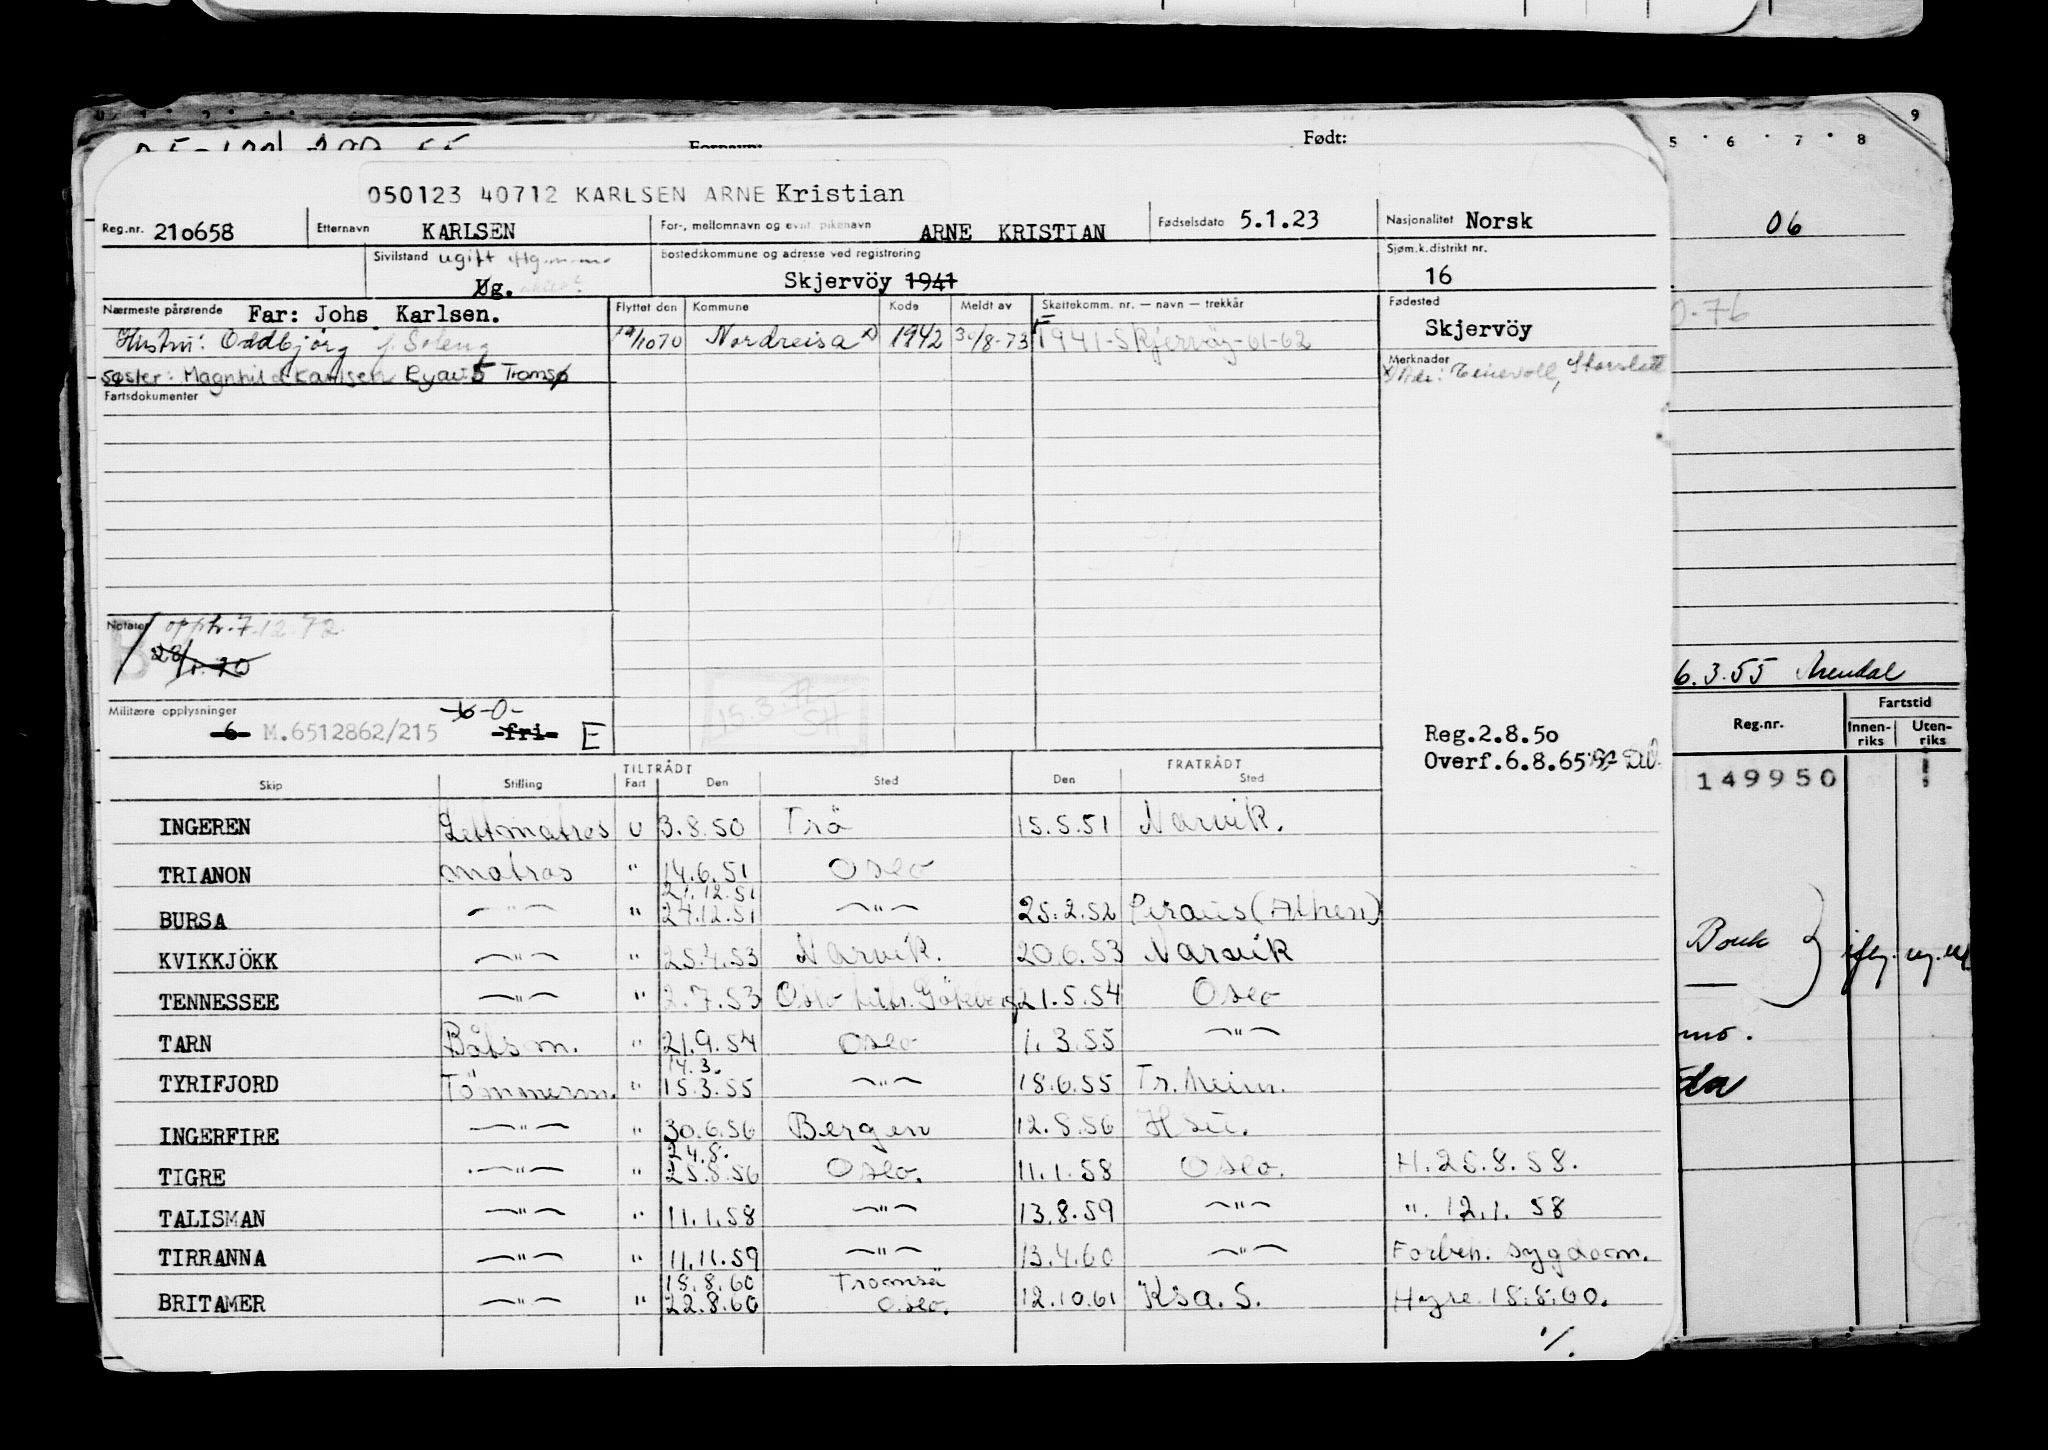 9
5 6 7 8
Fornavn: Født:
050123 40712 KARLSEN ARNE Kristian
Reg.nr. 210658 Etternavn KARLSEN For-, mellomnavn og evnt. pikenavn ARNE KRISTIAN Fødselsdato 5.1.23 Nasjonalitet Norsk
06
Sivilstand ugift Ug. Bostedskommune og adresse ved registrering Skjervöy 1941 Sjøm.k.distrikt nr. 16
Nærmeste pårørende Far: Johs. Karlsen. Flyttet den Kommune Kode Meldt av Skattekomm. nr. — navn — trekkår Fødested Skjervöy
Hustru: Oddbjörg f. Soleng 19/10 70 Nordreisa x) 1942 30/8-73 1941-Skjervöy-61-62
Søster: Magnhild Karlsen Ryav 5 Tromsø Merknader x) Adr: Storslett
Fartsdokumenter
Notater opph. 7.12.72
6.3.55 Arendal
Militære opplysninger -6- M.6512862/215 -0- -fri- E
Reg.2.8.50
Overf.6.8.65
Reg.nr. Fartstid
Innen-riks Uten-riks
149950
TILTRÅDT FRATRÅDT
Skip Stilling Fart Den Sted Den Sted
INGEREN Lettmatros U 3.8.50 Trå 15.5.51 Narvik.
TRIANON matros " 14.6.51 Oslo
21.12.51
BURSA —"— " 24.12.51 —"— 25.2.52 Piraus (Athen)
KVIKKJÖKK —"— " 25.4.53 Narvik. 20.6.53 Narvik
TENNESSEE —"— " 2.7.53 Oslo 21.5.54 Oslo
TARN Båtsm. " 21.9.54 Oslo 1.3.55 —"—
14.3.
TYRIFJORD Tömmerm. " 15.3.55 —"— 18.6.55 Tr.heim.
INGERFIRE —"— " 30.6.56 Bergen 12.8.56 H
24.8.
TIGRE —"— " 25.8.56 Oslo. 11.1.58 Oslo. H. 25.8.58.
TALISMAN —"— " 11.1.58 —"— 13.8.59 —"— ". 12.1.58
TIRRANNA —"— " 11.11.59 —"— 13.4.60 —"— Forbeh. sygdom.
18.8.60 Tromsö
BRITAMER —"— " 22.8.60 Oslo. 12.10.61 Kr.a.S. Hyre 18.8.60.
./.